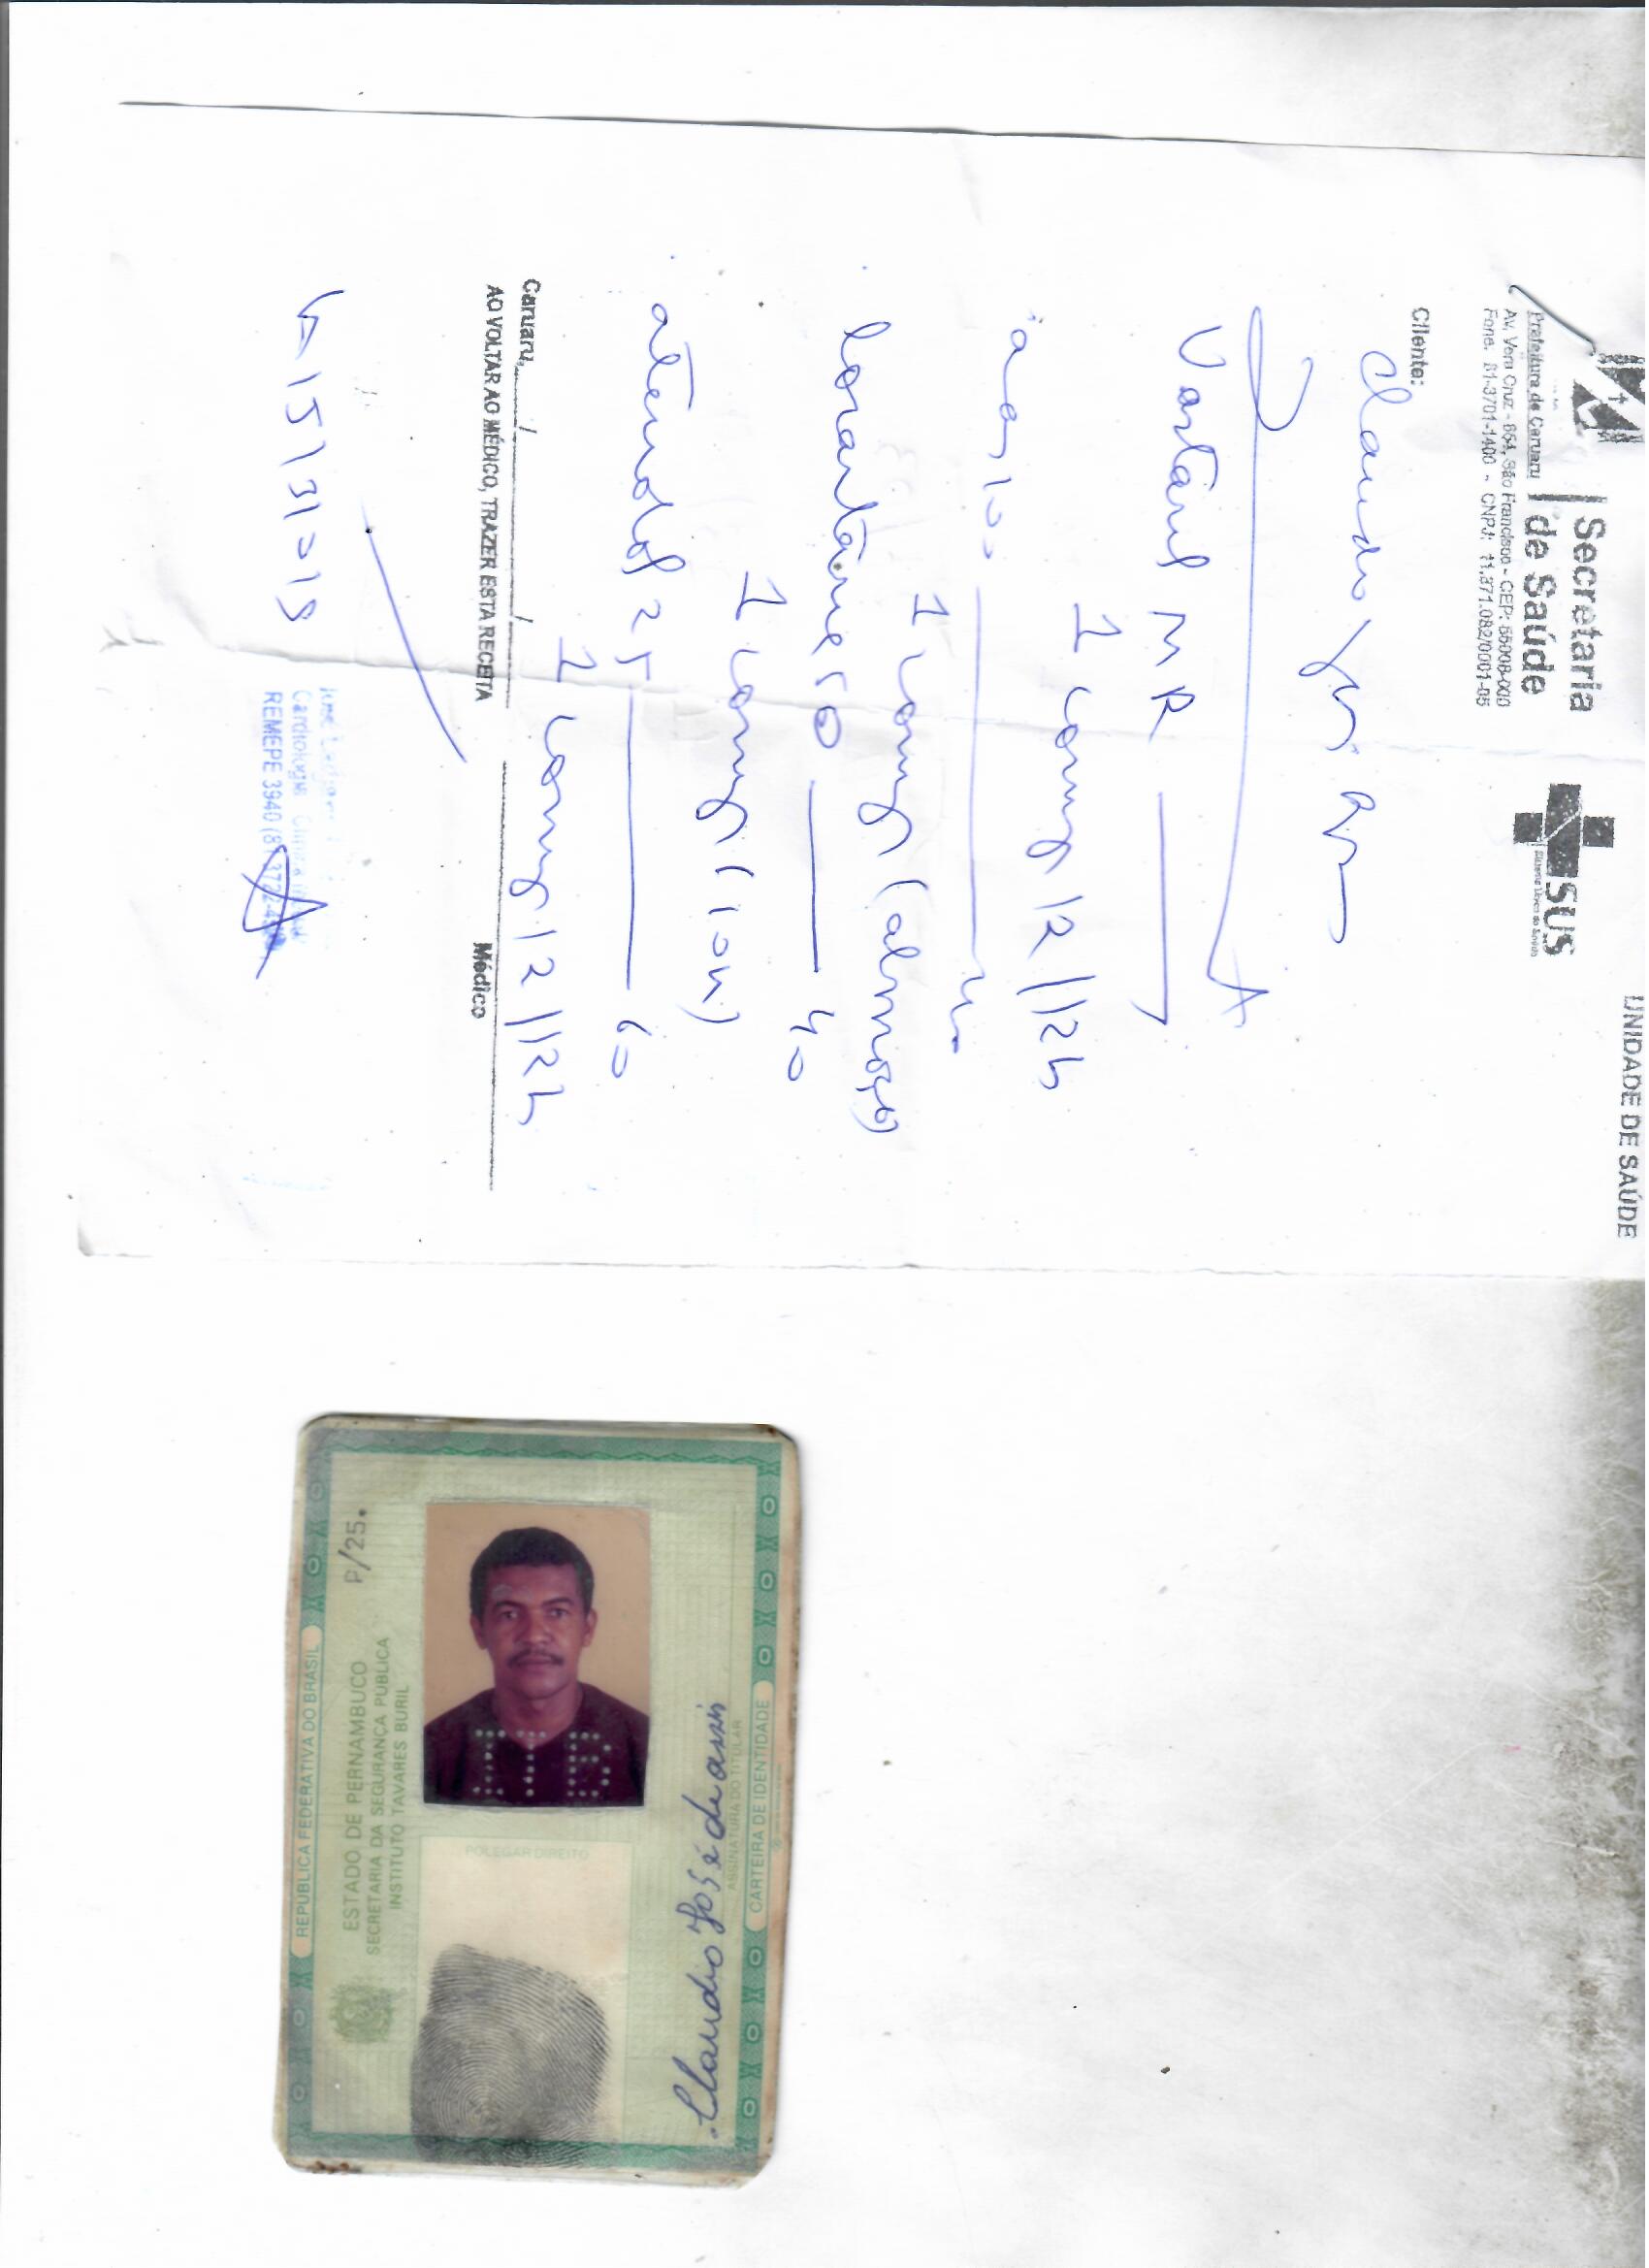 UNIDADE DE SAÚDE
Secretaria
de Saúde
SUS
Prefeitura de Caruaru
Av. Vera Cruz - 654, São Francisco - CEP: 55008-000
Fone: 81-3701-1400 - CNPJ: 11.371.082/0001-05
Cliente:
Claudio José
Vastarel MR
1 comp 12/12h
aas 100
1 comp (almoço)
losartana 50 40
1 comp (10h)
atenolol 25 60
1 comp 12/12h
Caruaru, / /
AO VOLTAR AO MÉDICO, TRAZER ESTA RECEITA
Médico
Cardiologia
REMEPE 3940
REPÚBLICA FEDERATIVA DO BRASIL
P/25.
ESTADO DE PERNAMBUCO
SECRETARIA DA SEGURANÇA PÚBLICA
INSTITUTO TAVARES BURIL
ITB.
POLEGAR DIREITO
Claudio José de assis
ASSINATURA DO TITULAR
CARTEIRA DE IDENTIDADE